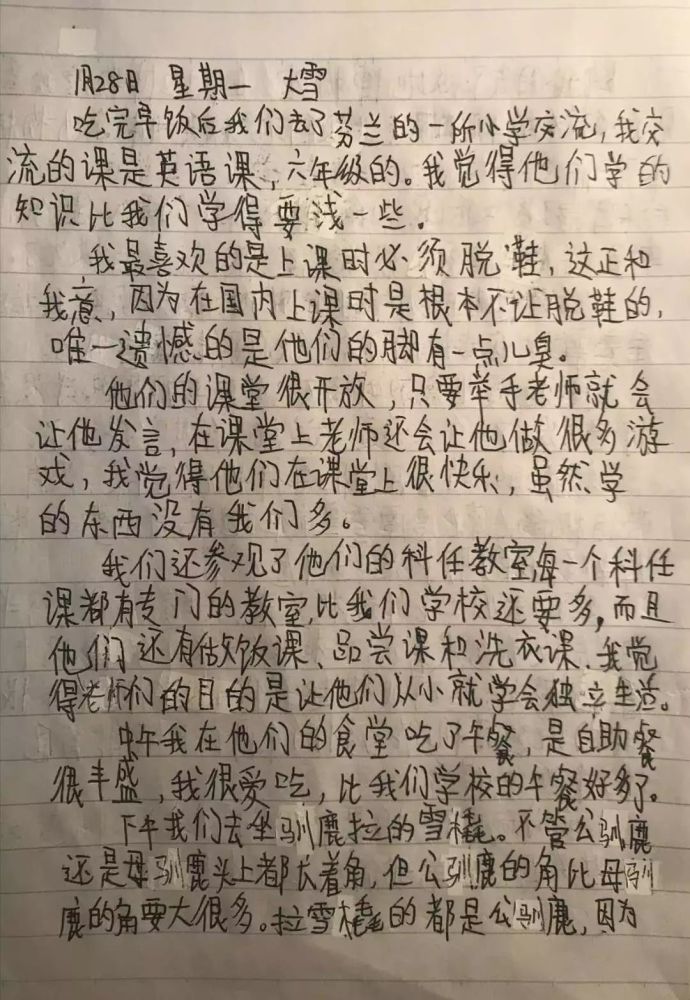 1月28日 星期一 大雪
吃完早饭后我们去了芬兰的一所小学交流,我交
流的课是英语课,六年级的。我觉得他们学的
知识比我们学得要浅一些。
我最喜欢的是上课时必须脱鞋,这正和
我意,因为在国内上课时是根本不让脱鞋的,
唯一遗憾的是他们的脚有一点儿臭。
他们的课堂很开放,只要举手老师就会
让他发言,在课堂上老师还会让他做很多游
戏,我觉得他们在课堂上很快乐,虽然学
的东西没有我们多。
我们还参观了他们的科任教室,每一个科任
课都有专门的教室,比我们学校还要多,而且
他们还有做饭课、品尝课和洗衣课、我觉
得老师们的目的是让他们从小就学会独立生活。
中午我在他们的食堂吃了午餐,是自助餐
很丰盛,我很爱吃,比我们学校的午餐好多了。
下午我们去坐驯鹿拉的雪橇。不管公驯鹿
还是母驯鹿头上都长着角,但公驯鹿的角比母驯
鹿的角要大很多。拉雪橇的都是公驯鹿,因为